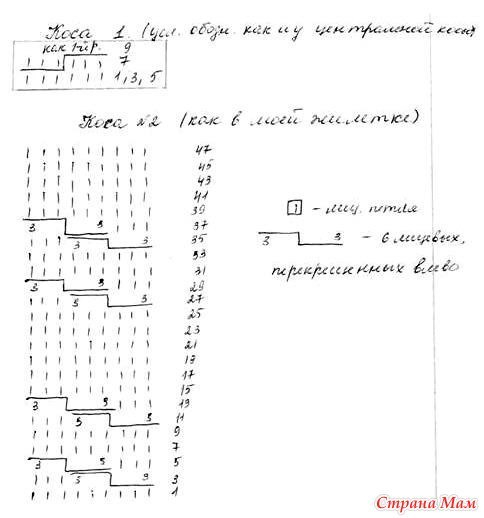 Коса 1. (усл. обозн. как и у центральной косы)
как 1-й р. 9
7
1, 3, 5
Коса №2 (как в моей жилетке)
47
45
43
41
39
3 3 37
3 3 35
33
31
3 3 29
3 3 27
25
23
21
19
17
15
3 3 13
3 3 11
9
7
3 3 5
3 3 3
1
| – лиц. петля
3 3 – 6 лицевых,
перекрещенных влево
Страна Мам